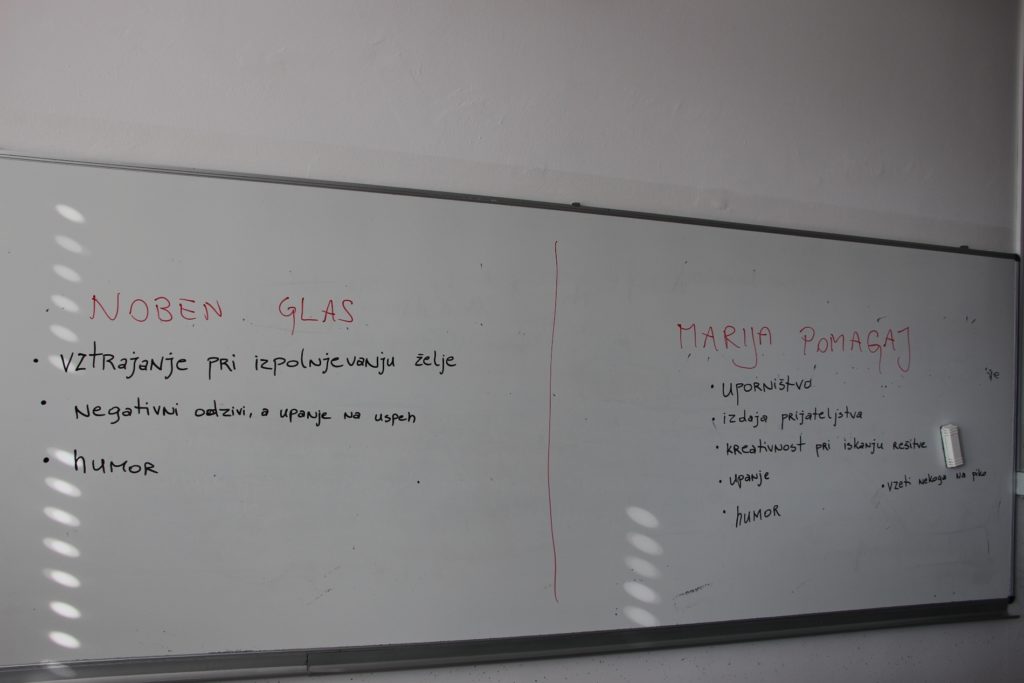 NOBEN GLAS
• vztrajanje pri izpolnjevanju želje
• negativni odzivi, a upanje na uspeh
• humor
MARIJA POMAGAJ
• uporništvo
• izdaja prijateljstva
• kreativnost pri iskanju rešitve
• upanje
• humor
• vzeti nekoga na piko